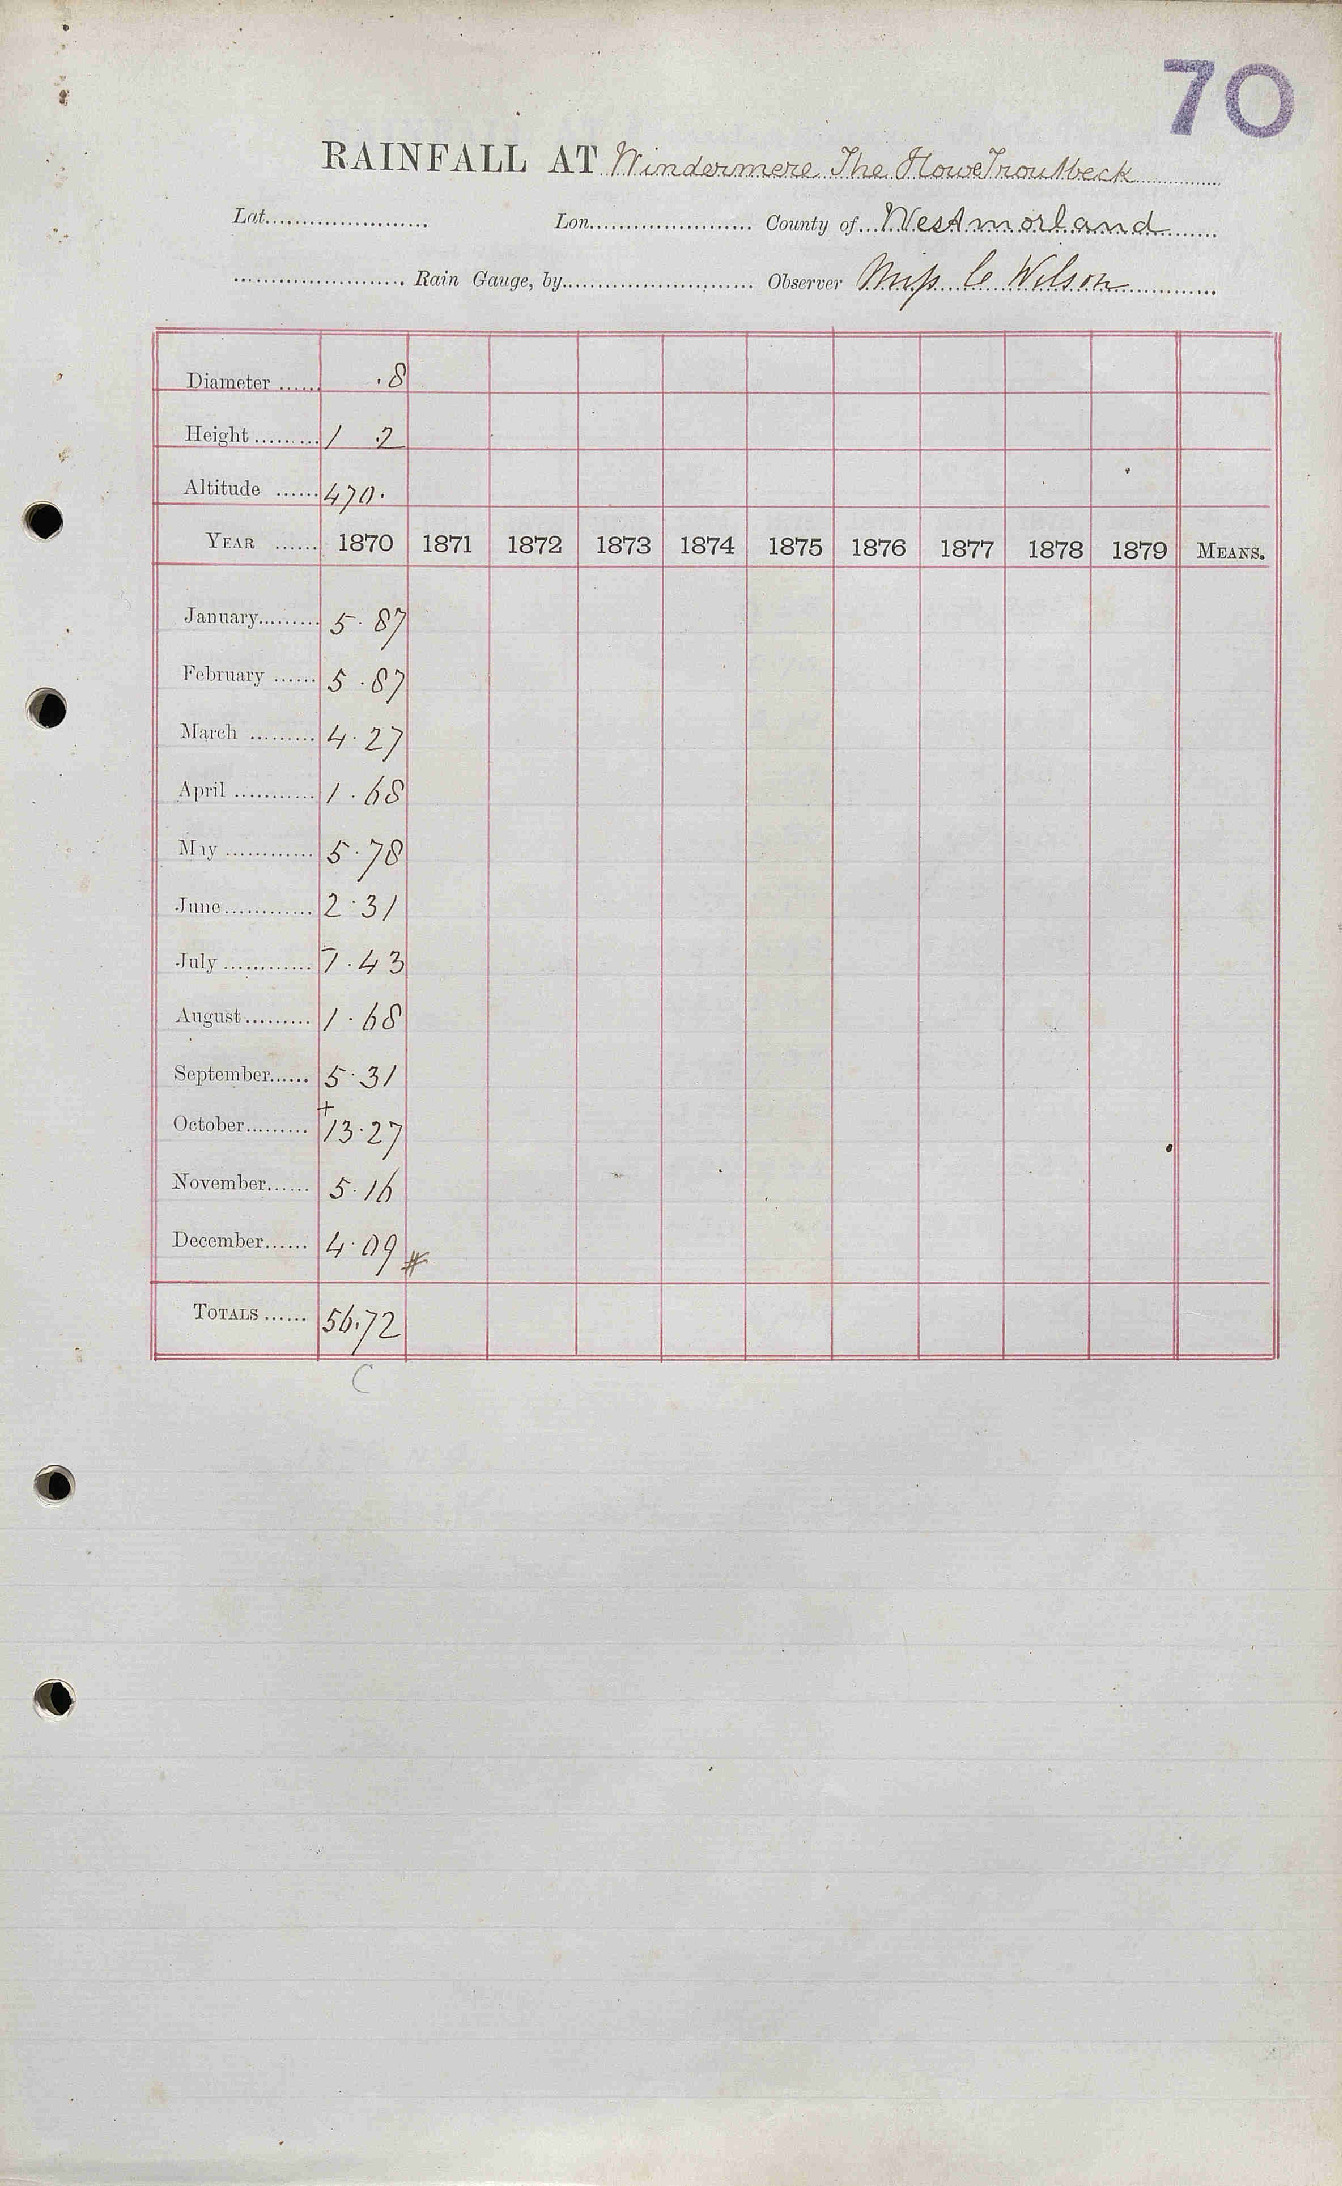 70
RAINFALL AT Windermere The Howe Troutbeck
Lat. Lon. County of Westmorland
Rain Gauge, by Observer Miss C Wilson
Diameter ...... .8
Height ......... 1 .2
Altitude ...... 470.
YEAR ...... 1870 1871 1872 1873 1874 1875 1876 1877 1878 1879 MEANS.
January......... 5.87
February ...... 5.87
March ......... 4.27
April ............ 1.68
May ............ 5.78
June ............ 2.31
July ............ - 1.43
August ......... 1.68
September...... 5.31
October ......... + 13.27
November...... 5.16
December...... 4.09 #
TOTALS ...... 56.72
C